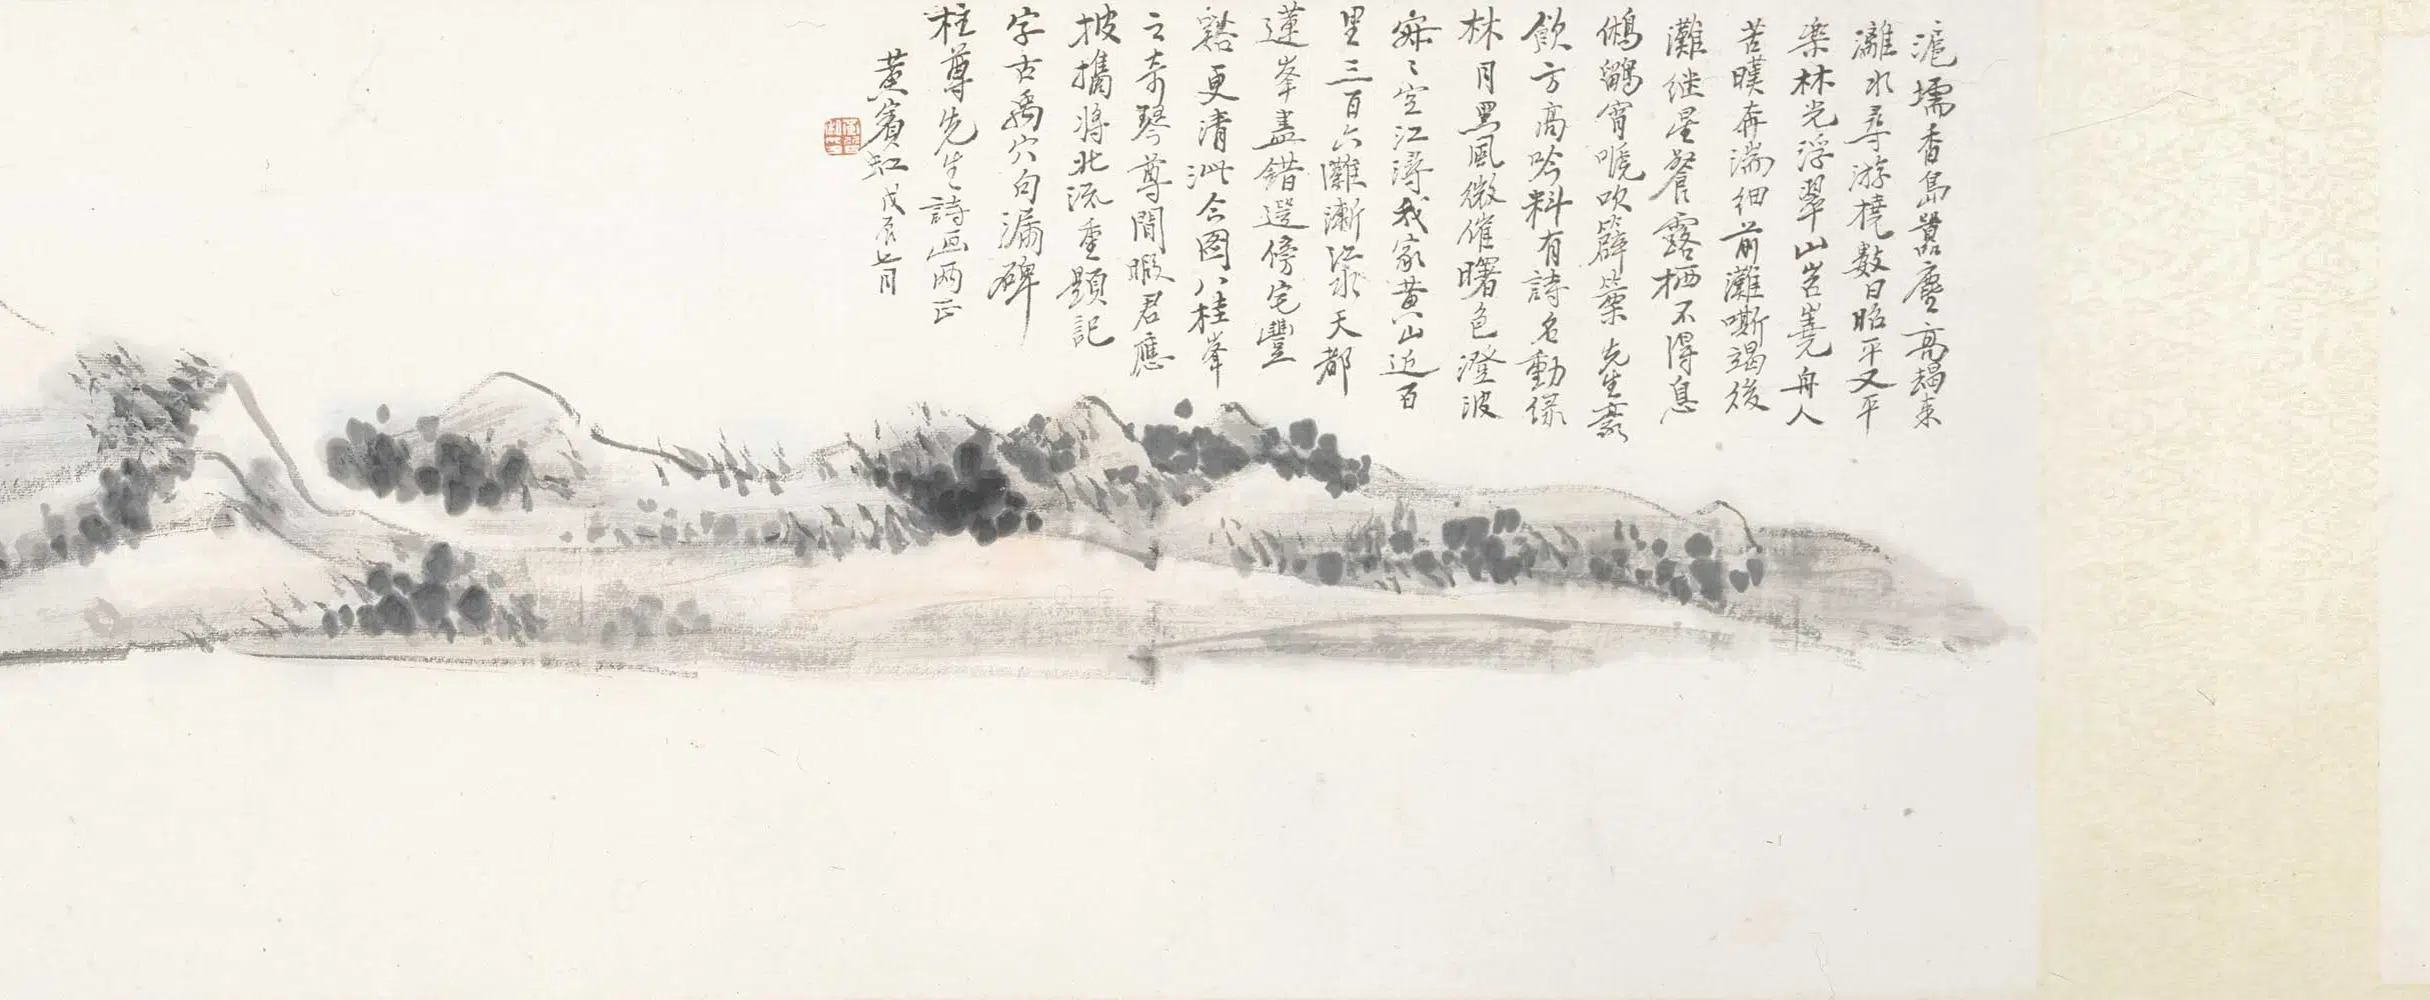 滬壖香島囂塵高朅来
灕水尋游橈數日昭平又平
樂林光浮翠山岧嶤舟人
苦暵奔湍细前灘嘶竭後
灘继星餐露栖不得息
鵂鶹宵啼吹觱篥先生豪
飲方高吟料有詩名動
林月黑風微催曙色澄波
寂〻空江潯我家黄山近百
里三百六灘漸江水天都
蓮峯盡錯遌傍宅豐
谿更清泚合图八桂峯
之奇琴尊閒暇君應
披攜將北流重題記
字古禹穴句漏碑
柱尊先生詩画两正
黄賓虹戊辰七月